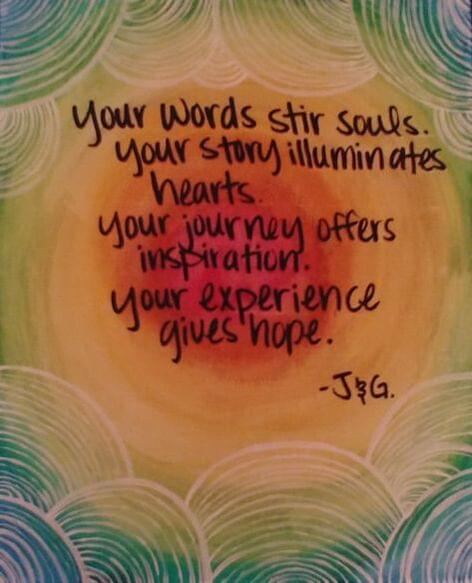 your words stir souls.
your story illuminates
hearts.
your journey offers
inspiration.
your experience
gives hope.
-J&G.